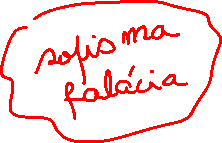 sofisma
falácia